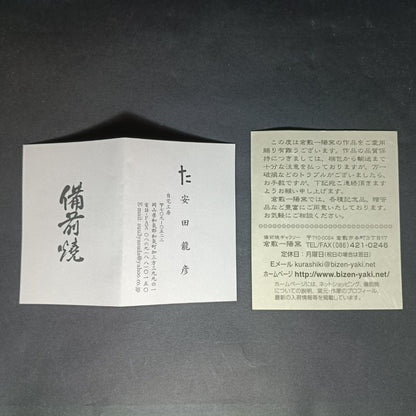 備前焼
た
安田龍彦
自宅・工房
この度は倉敷一陽窯の作品をご愛用
賜り有難うございます。作品の品質保
持につきましては、梱包から輸送まで
十分な注意を払っておりますが、万一
破損などのトラブルがございましたら、
お手数ですが、下記宛ご連絡頂きます
ようお願い申し上げます。
倉敷一陽窯では、各種記念品、贈答
品など豊富にご用意いたしております。
お気軽にご相談ください。
備前焼ギャラリー 〒710-0054 倉敷市本町3丁目17
倉敷一陽窯 TEL/FAX(086)421-0246
定休日:月曜日(祝日の場合は翌日)
Eメール kurashiki@bizen-yaki.net
ホームページ http://www.bizen-yaki.net/
ホームページには、ネットショッピング、備前焼
についての説明、窯元・作家のプロフィール、
最新の入荷情報などを掲載しています。